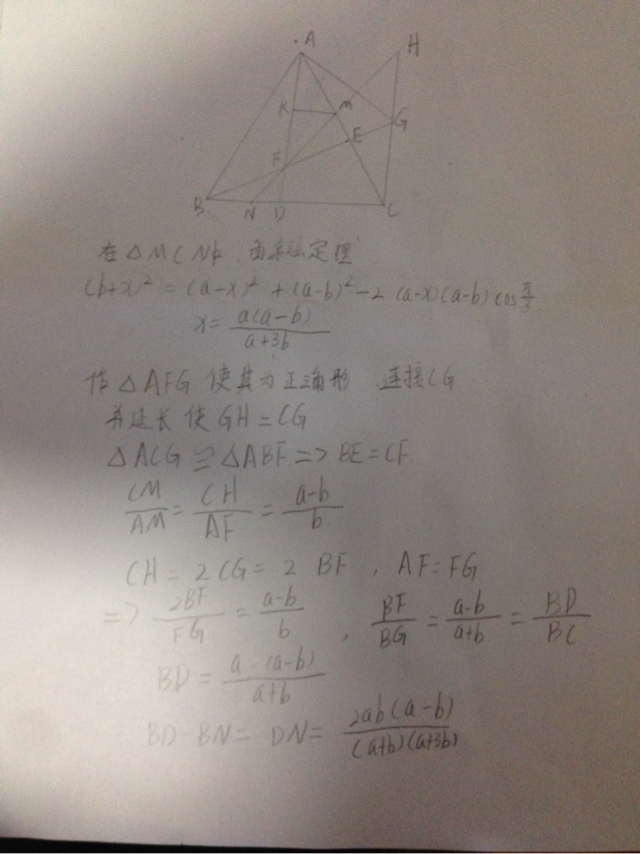 A H
K M G
E
F
B N D C
在△MCN中,由余弦定理
(b+x)² = (a-x)² + (a-b)² - 2 (a-x)(a-b) cos π/3
x = a(a-b)/(a+3b)
作△AFG 使其为正三角形 连接CG
并延长使GH=CG
△ACG ≌ △ABF => BE=CF
CM/AM = CH/AF = (a-b)/b
CH = 2CG = 2BF , AF=FG
=> 2BF/FG = (a-b)/b , BF/BG = (a-b)/(a+b) = BD/BC
BD = a·(a-b)/(a+b)
BD-BN = DN = 2ab(a-b)/(a+b)(a+3b)